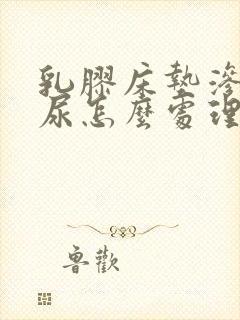 乳膠床墊滲
尿怎麼處理
魯歡